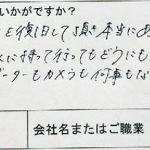 いかがですか？
を復旧して頂き本当にあ
に持って行ってもどうにも
ーターもカメラも何事もな
会社名またはご職業